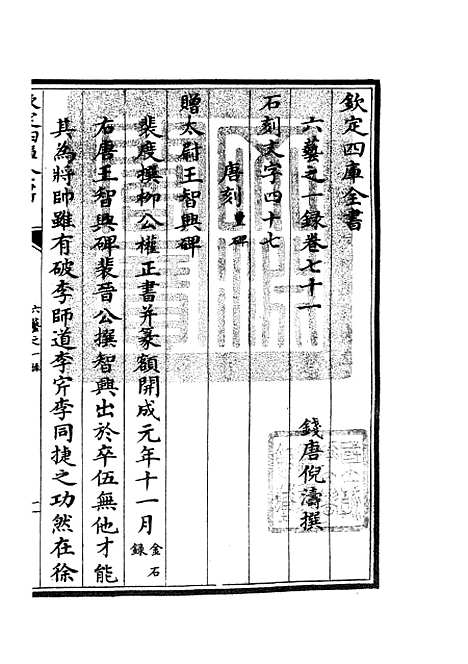 欽定四庫全書
六藝之一錄卷七十一
錢唐倪濤撰
石刻文字四十七
唐刻 碑
贈太尉王智興碑
裴度撰柳公權正書并篆額開成元年十一月 金石錄
右唐王智興碑裴晉公撰智興出於卒伍無他才能
其為將帥雖有破李師道李㝏李同捷之功然在徐
六藝之一錄